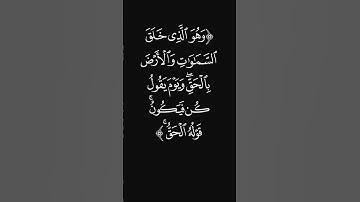 ﴿وَهُوَ ٱلَّذِى خَلَقَ
ٱلسَّمَـٰوَٰتِ وَٱلْأَرْضَ
بِٱلْحَقِّ ۖ وَيَوْمَ يَقُولُ
كُن فَيَكُونُ ۚ
قَوْلُهُ ٱلْحَقُّ ۚ﴾